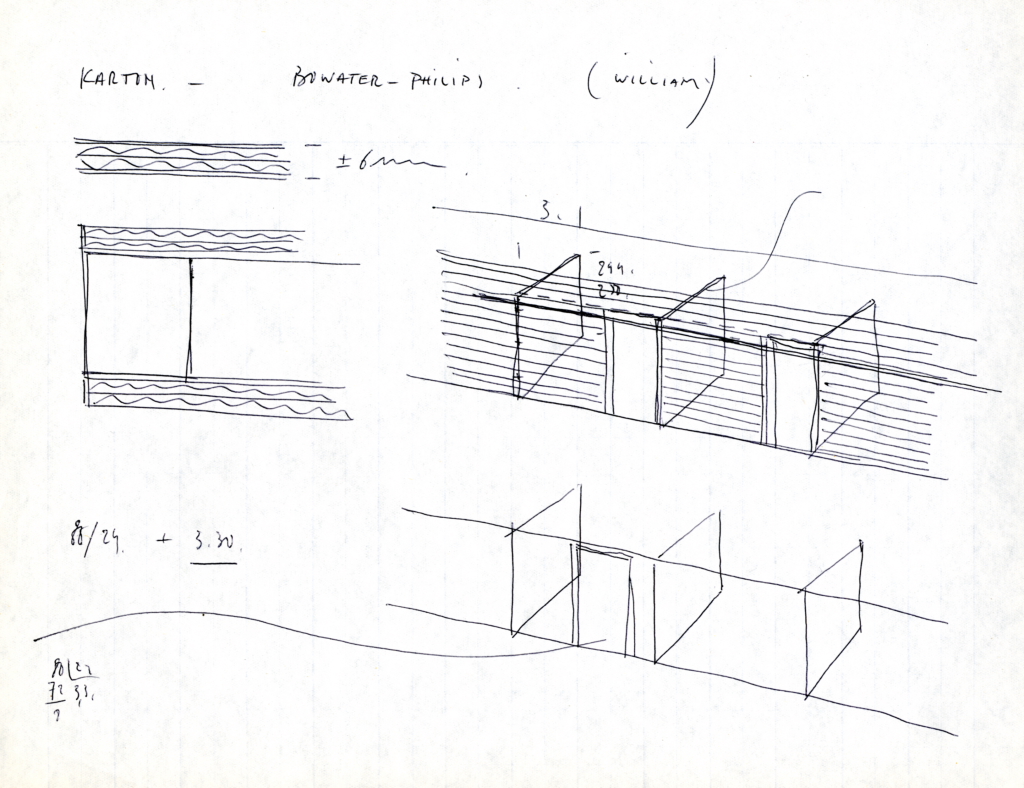 KARTON. – BOWATER – PHILIPS. (WILLIAM.)
± 6mm
3.
244.
80/24. + 3.30.
80
72